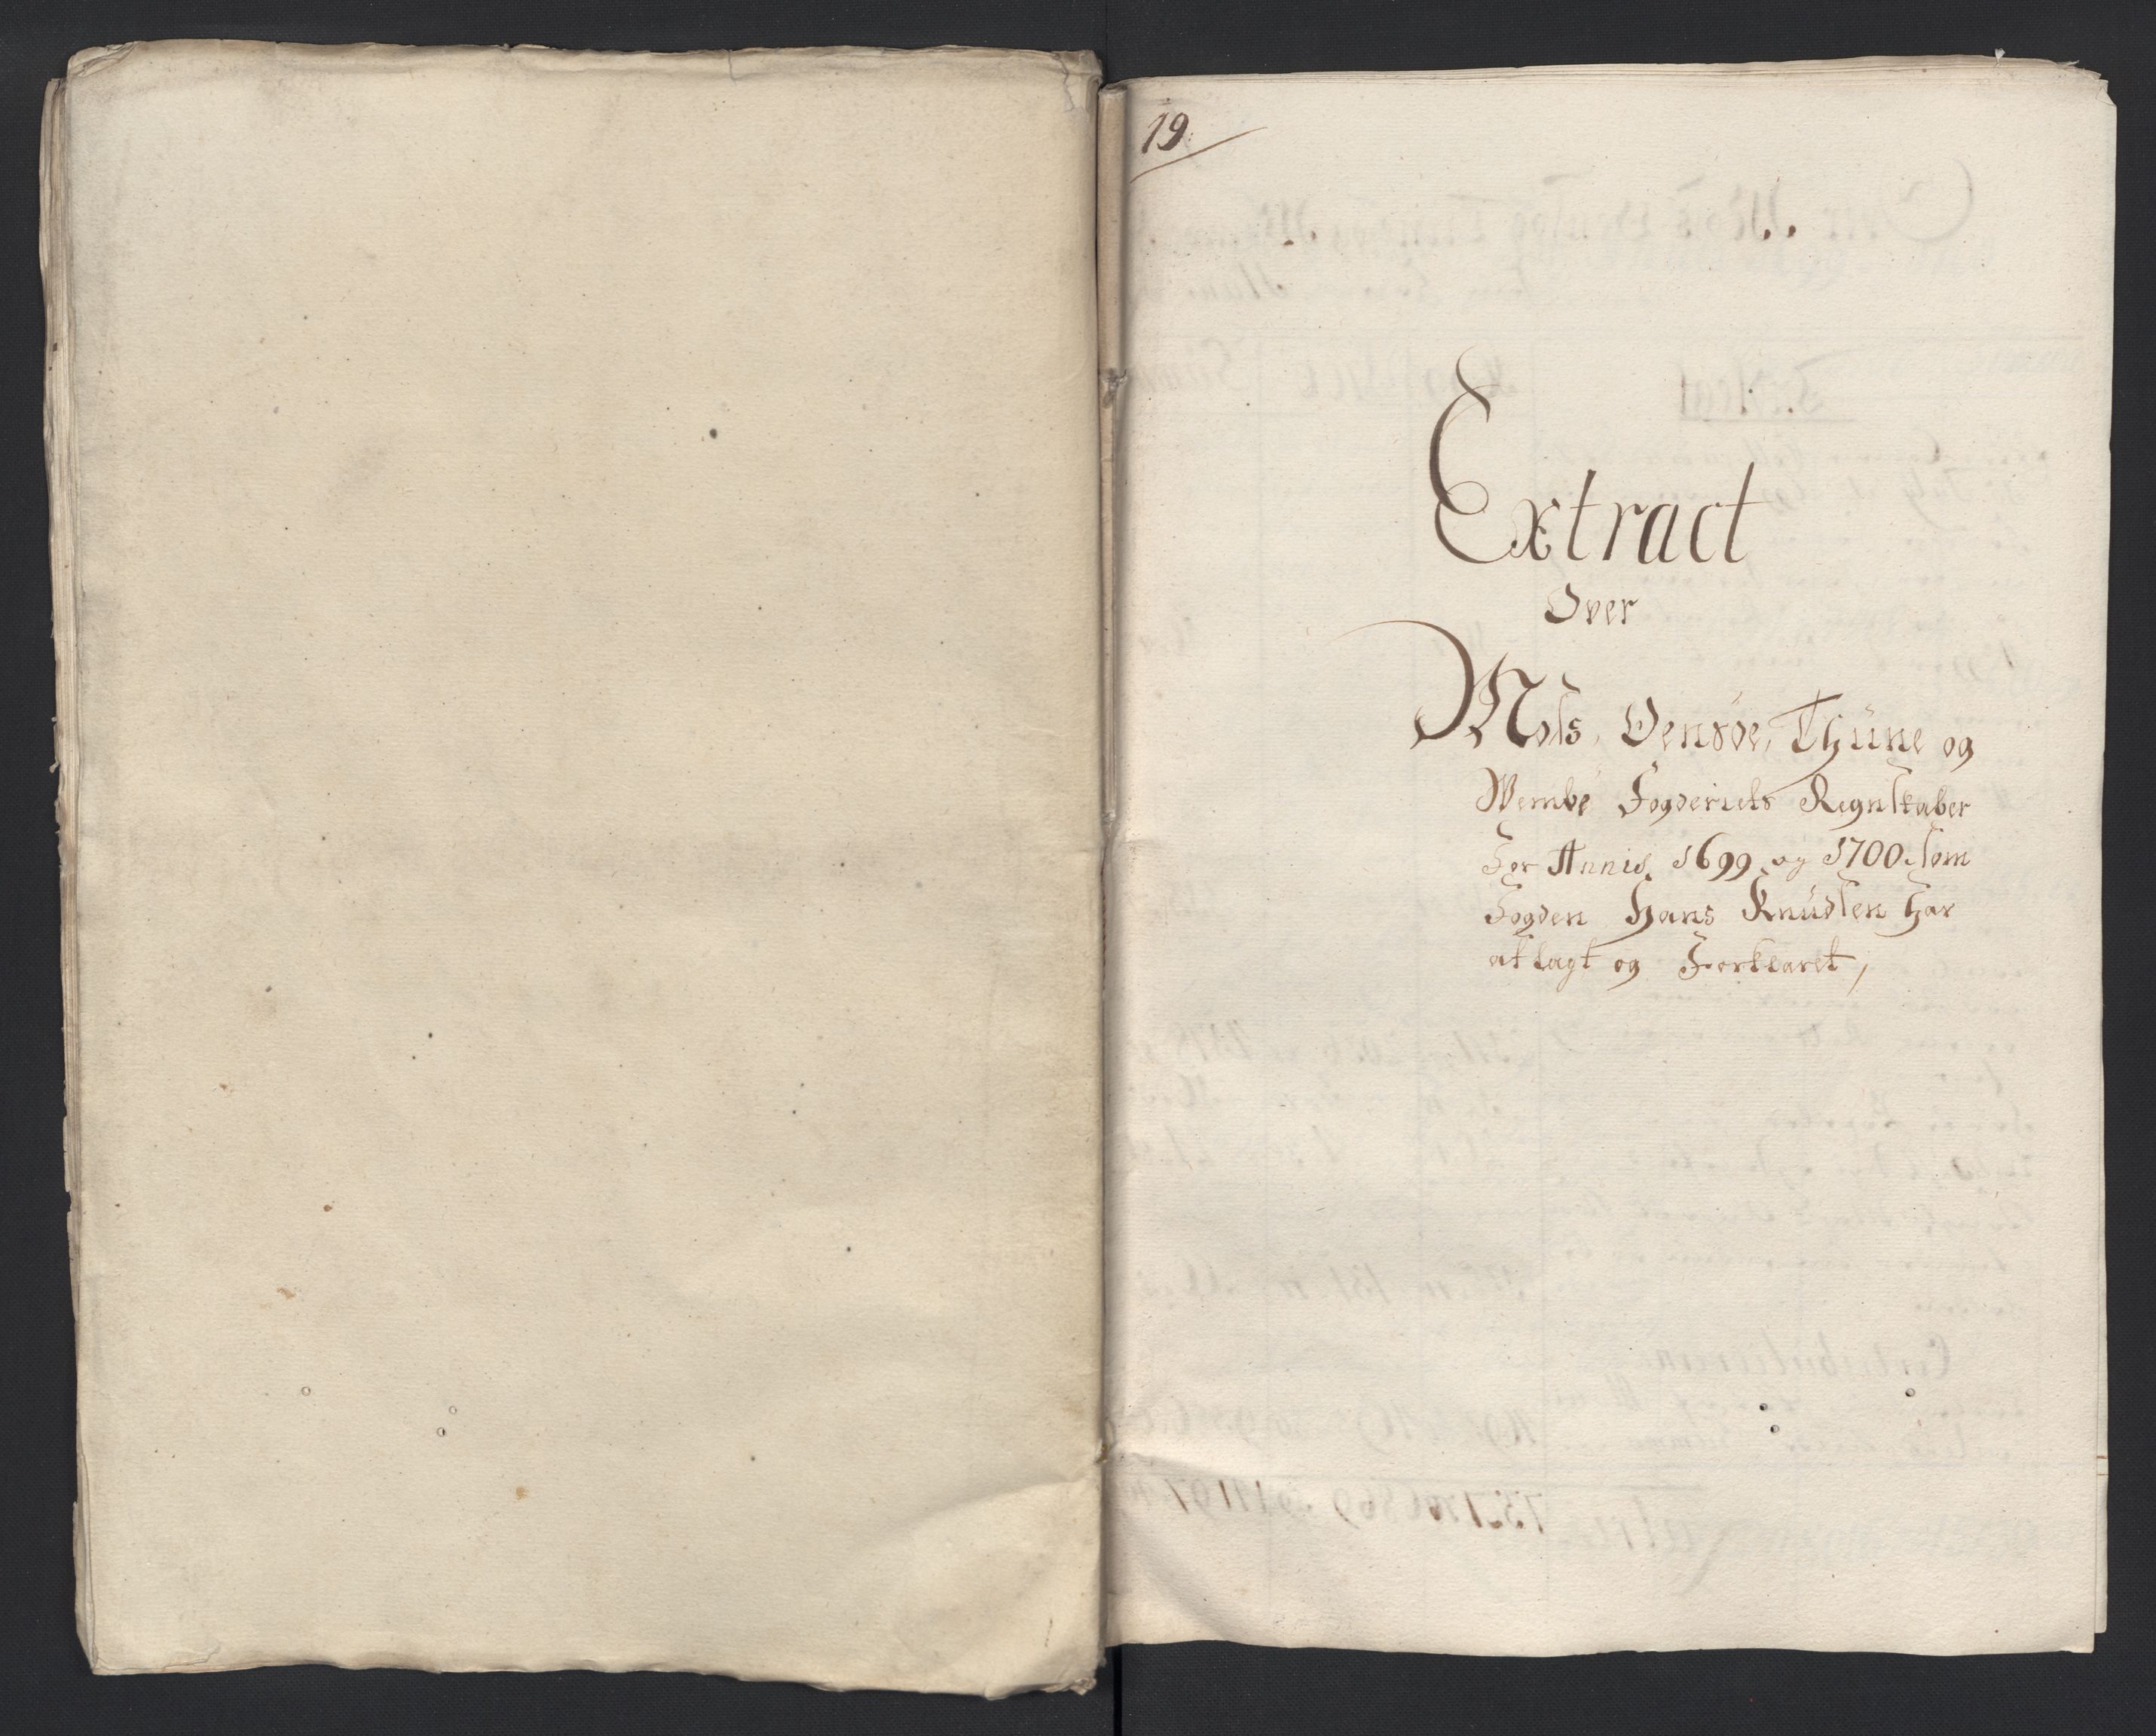 19.
Extract
Over
Mos's, Oensøe, Thüne og
Wembe Fogderiets Regnskaber
For Annis 1699 og 1700 som
Fogden Hans Knudsen har
aflagt og Forklaret,